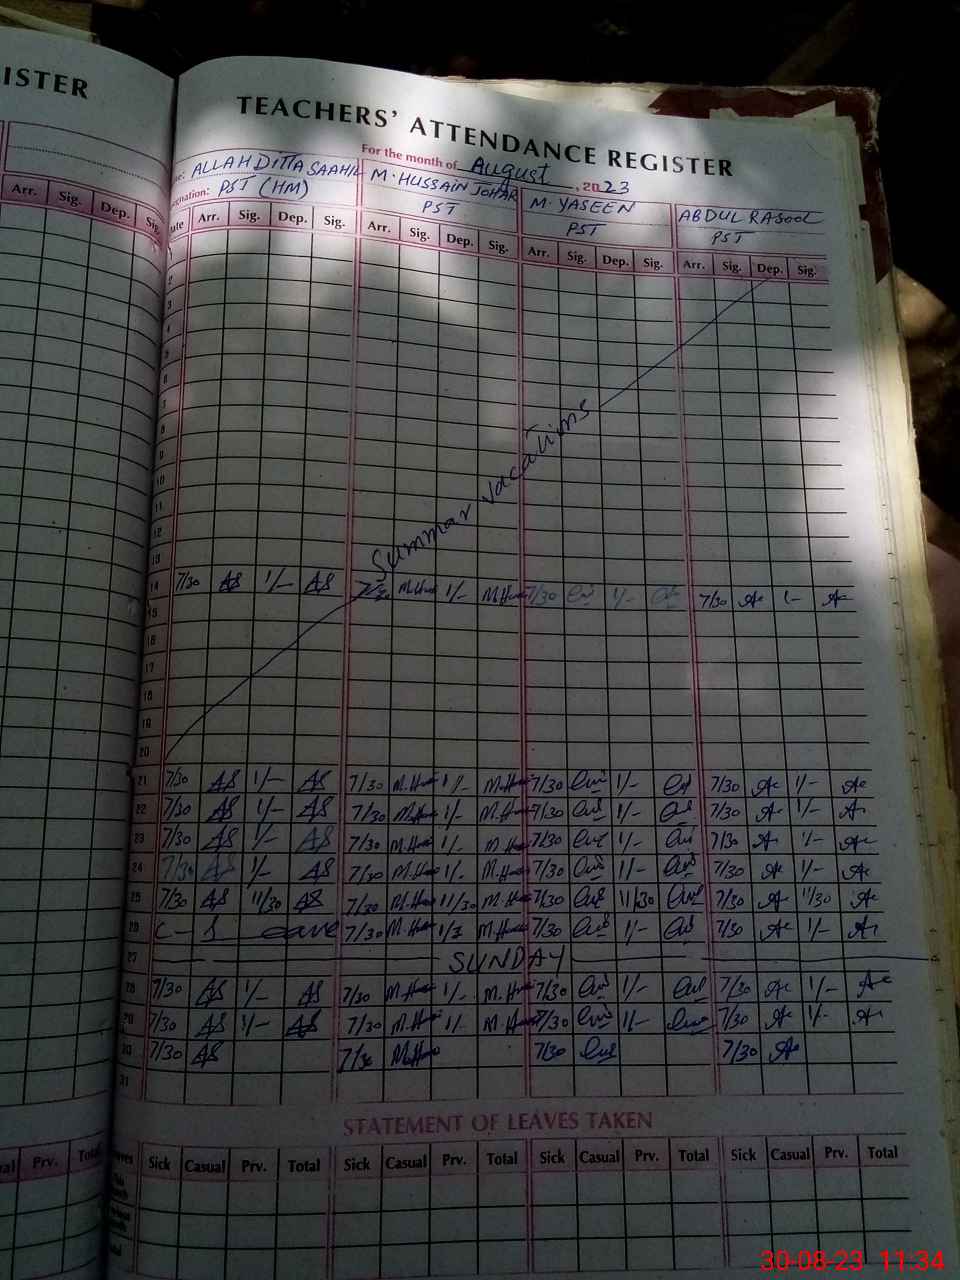 ISTER
TEACHERS' ATTENDANCE REGISTER
For the month of August, 2023
ALLAH DITTA SAAHIL M. HUSSAIN JOHAR M. YASEEN ABDUL RASOOL
PST (HM) PST PST PST
Arr. Sig. Dep. Sig. Arr. Sig. Dep. Sig. Arr. Sig. Dep. Sig. Arr. Sig. Dep. Sig. Arr. Sig. Dep. Sig.
2
3
4
5
6
7
8
9
10
11
12
13
Summar vacations
14 7/30 AS 1/- AS M.Hus 1/- M.Hus 7/30 1/- 7/30 1/-
15
16
17
18
19
20
21 7/30 AS 1/- AS 7/30 M.Hus 1/- M.Hus 7/30 1/- 7/30 1/-
22 7/30 AS 1/- AS 7/30 M.Hus 1/- M.Hus 7/30 1/- 7/30 1/-
23 7/30 AS 1/- AS 7/30 M.Hus 1/- M.Hus 7/30 1/- 7/30 1/-
24 7/30 AS 1/- AS 7/30 M.Hus 1/- M.Hus 7/30 1/- 7/30 1/-
25 7/30 AS 11/30 AS 7/30 M.Hus 11/30 M.Hus 7/30 11/30 7/30 11/30
26 C-1 eave 7/30 M.Hus M.Hus 7/30 1/- 7/30 1/-
27 SUNDAY
28 7/30 AS 1/- AS 7/30 M.Hus 1/- M.Hus 7/30 1/- 7/30 1/-
29 7/30 AS 1/- AS 7/30 M.Hus 1/- M.Hus 7/30 1/- 7/30 1/-
30 7/30 AS 7/30 M.Hus 7/30 7/30
31
STATEMENT OF LEAVES TAKEN
Prv. Total Sick Casual Prv. Total Sick Casual Prv. Total Sick Casual Prv. Total Sick Casual Prv. Total
30-08-23 11:34